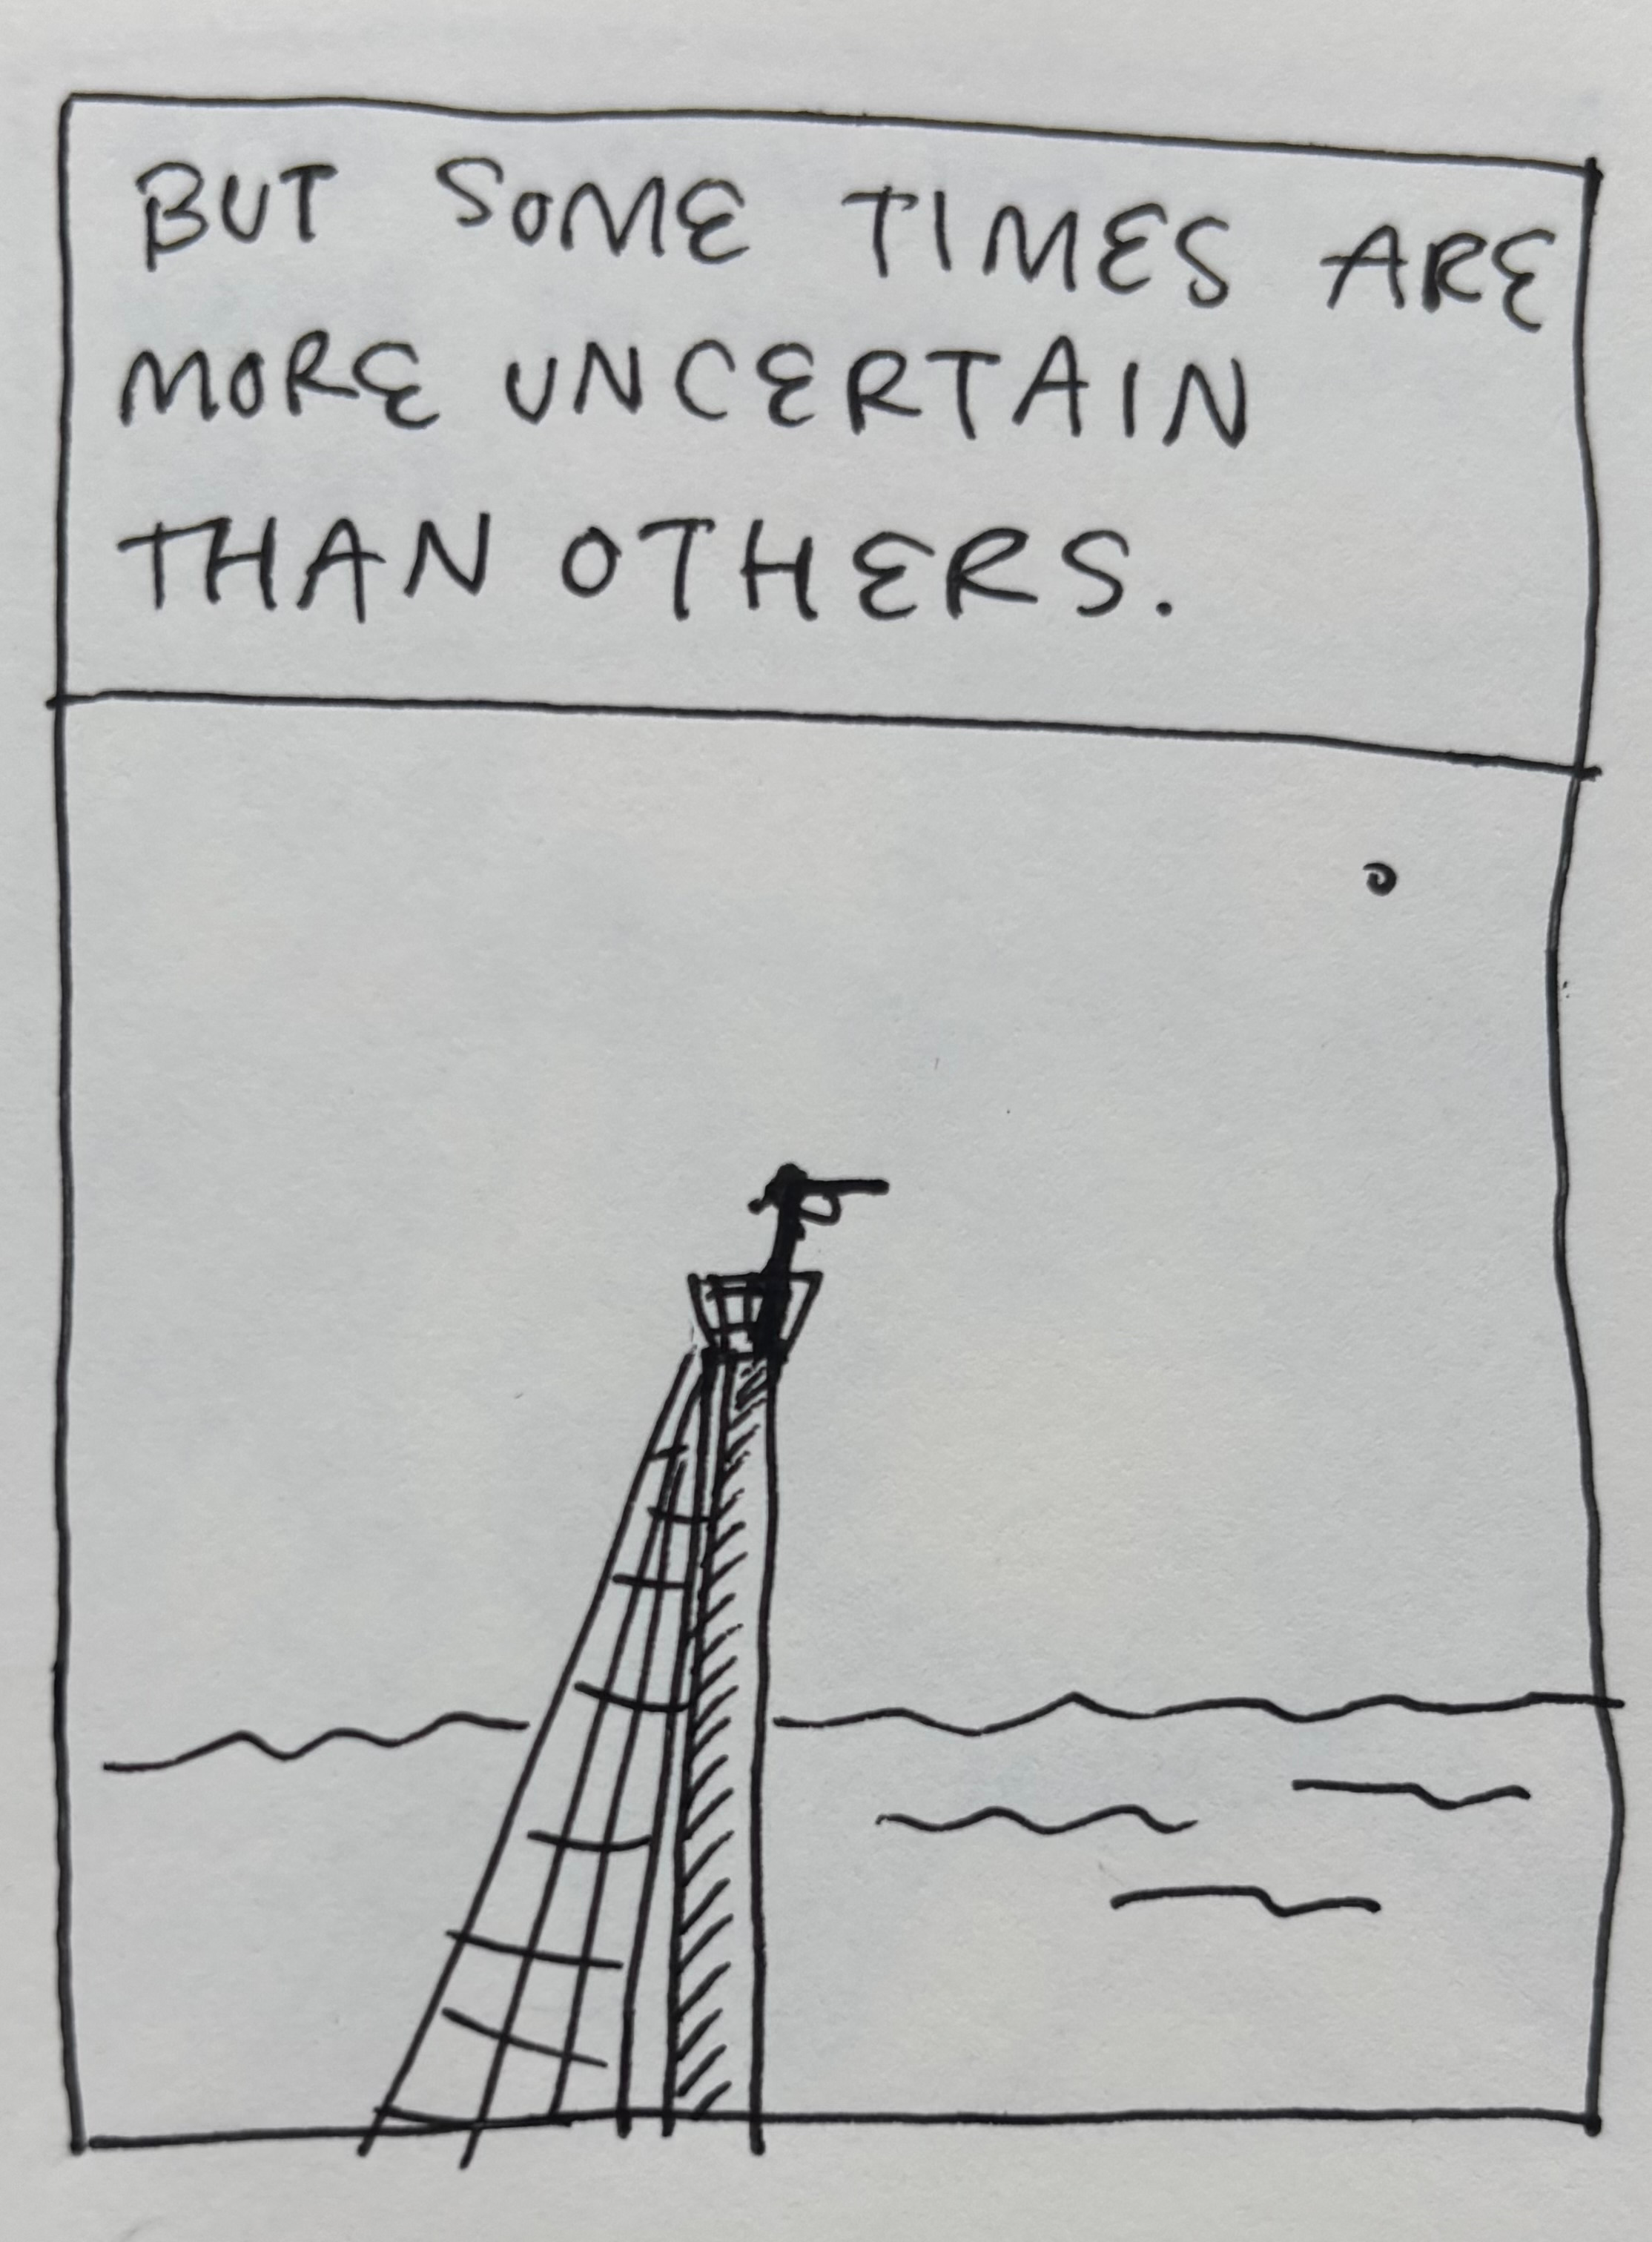 BUT SOME TIMES ARE
MORE UNCERTAIN
THAN OTHERS.